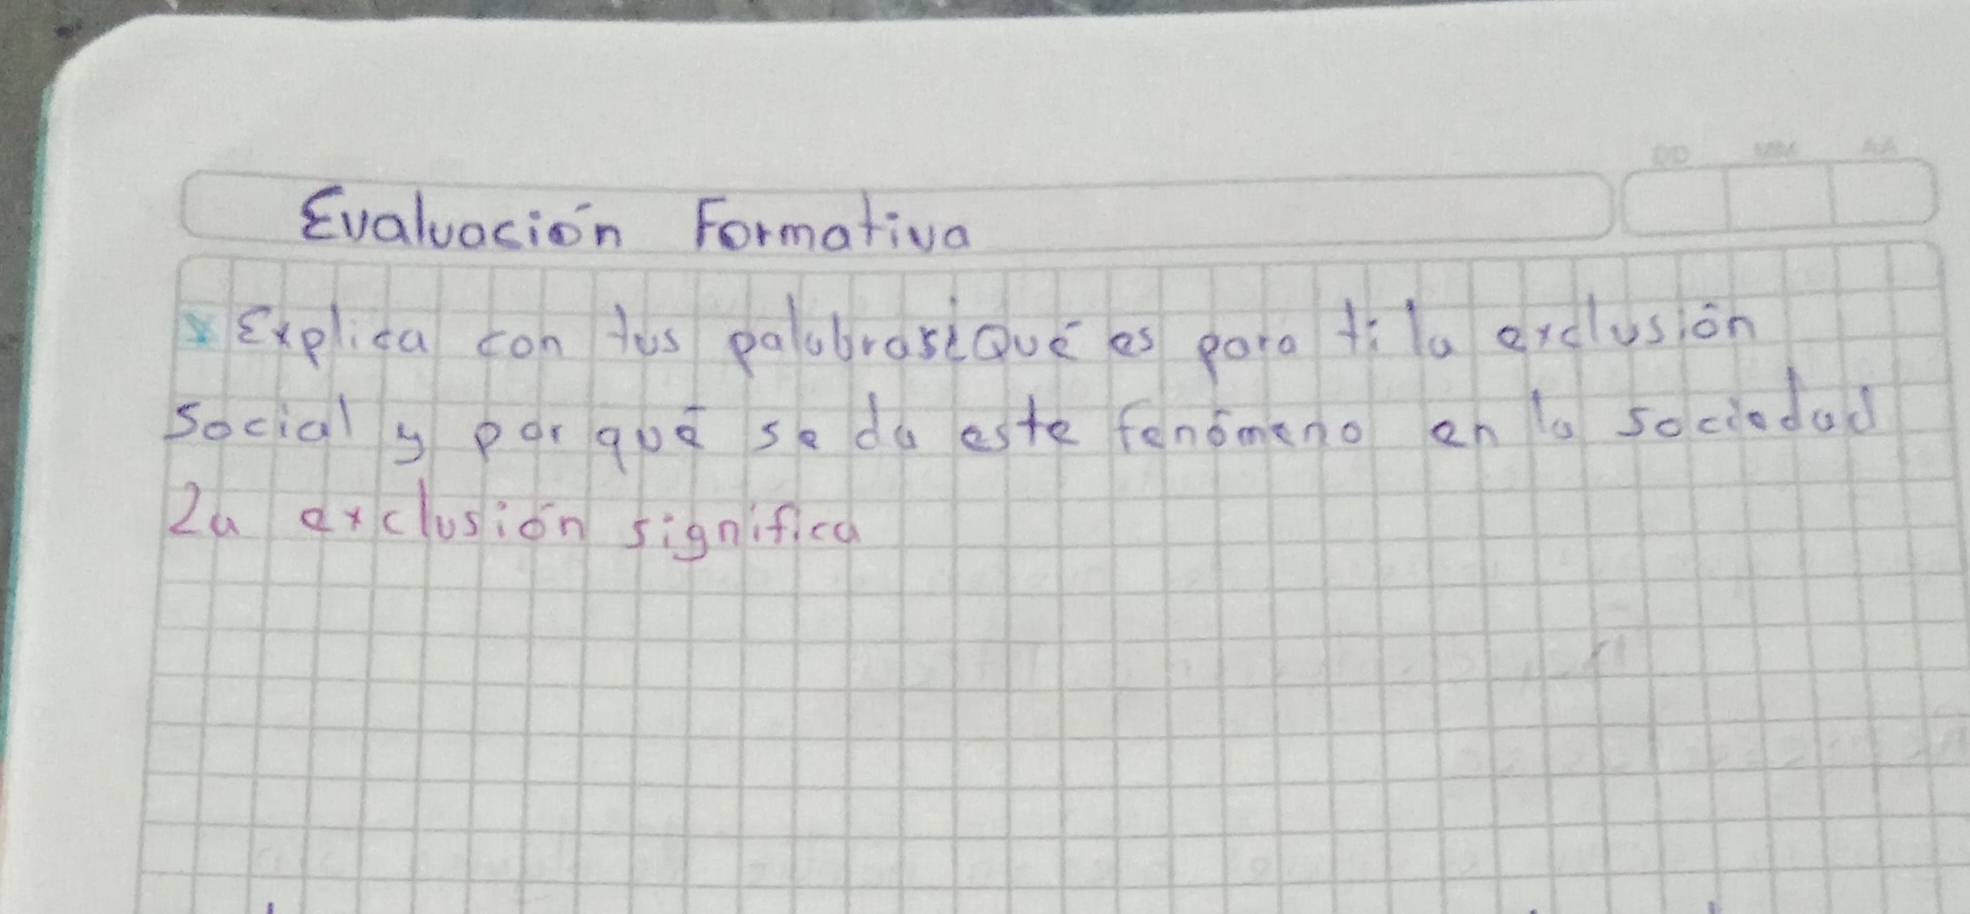 DD MM AA
Evaluación Formativa
*Explica con tus palabras¿Qué es para ti la exclusión
Social y por qué se da este fenómeno en la sociedad
La exclusión significa